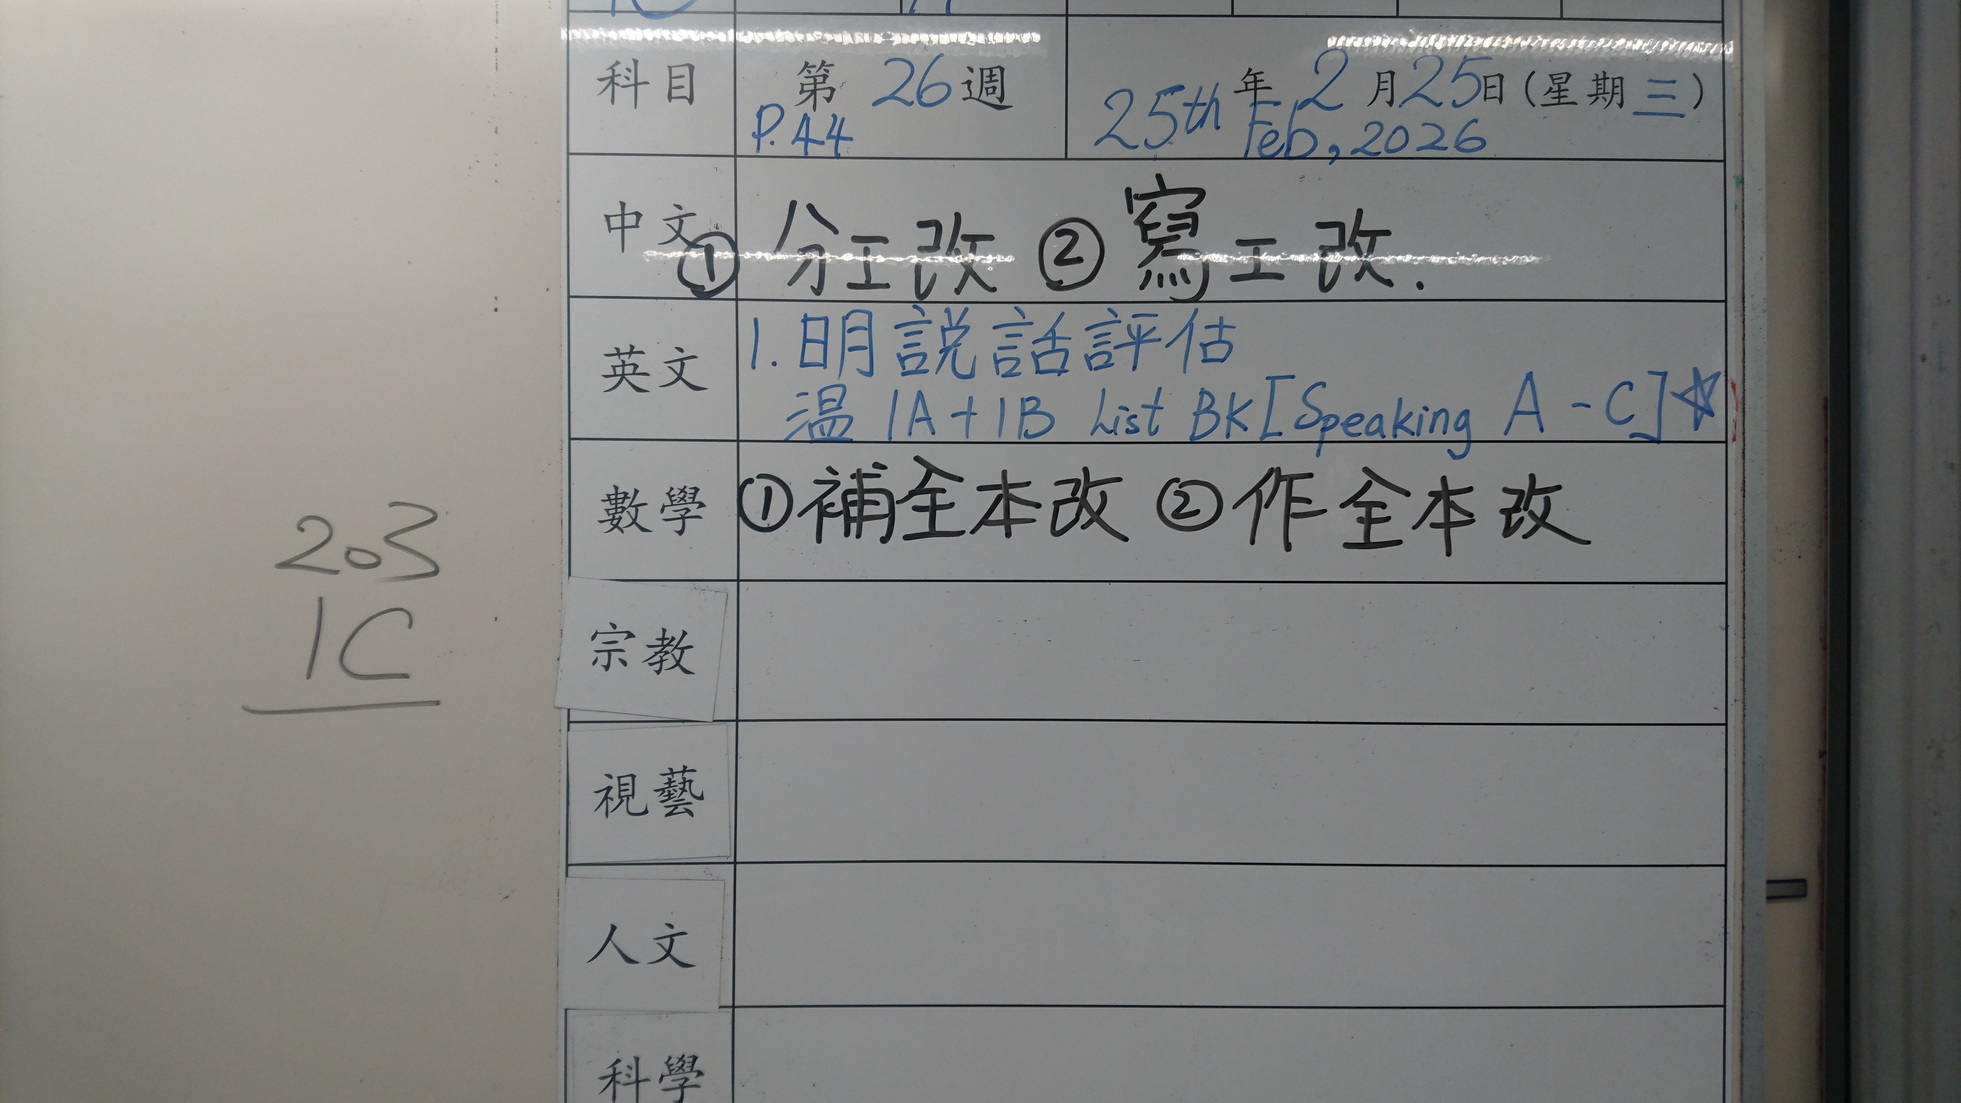 203
1C
科目 第26週 年2月25日(星期三)
P.44 25th Feb, 2026
中文 ①分工改 ②寫工改.
英文 1.明説話評估
温1A+1B List BK[Speaking A-C]☆
數學 ①補全本改 ②作全本改
宗教
視藝
人文
科學